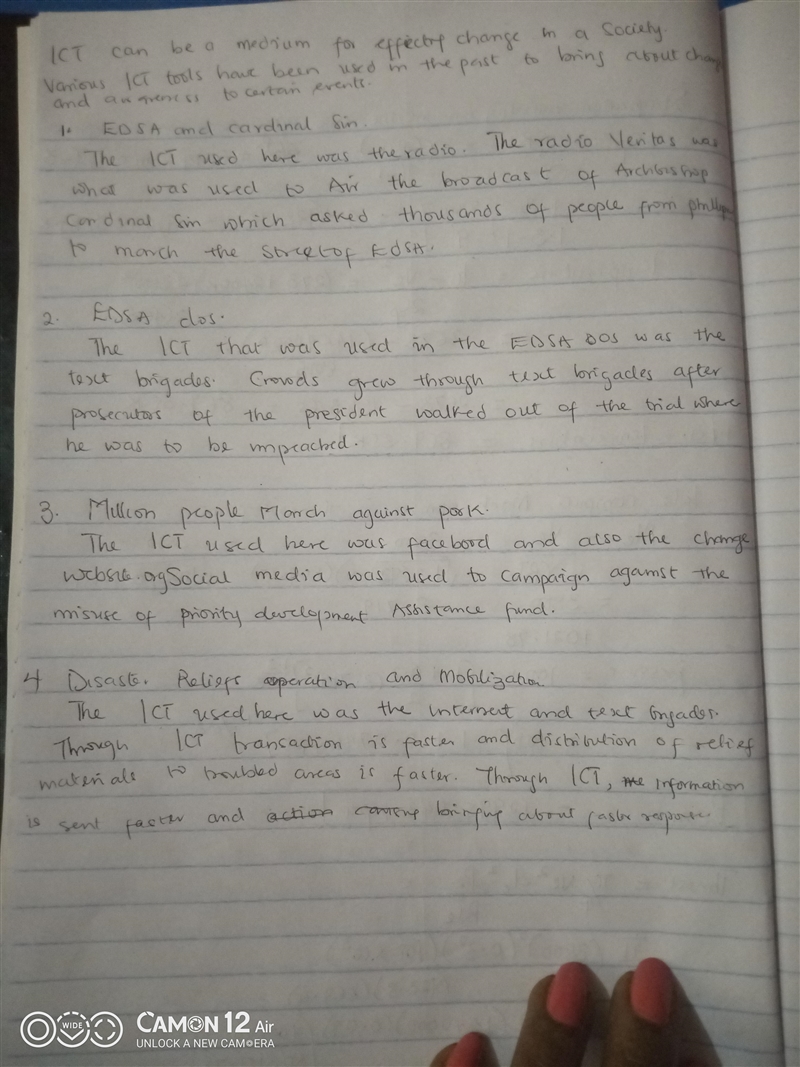 ICT can be a medium for effecting change in a Society.
Various ICT tools have been used in the past to bring about
and awareness to certain events.
1. EDSA and cardinal Sin.
The ICT used here was the radio. The radio Veritas was
what was used to Air the broadcast of Archbishop
Cardinal Sin which asked thousands of people from
to march the street of EDSA.
2. EDSA dos.
The ICT that was used in the EDSA DOS was the
text brigades. Crowds grew through text brigades after
prosecutors of the president walked out of the trial where
he was to be impeached.
3. Million people March against pork.
The ICT used here was and also the change
website.org Social media was used to campaign against the
misuse of priority development Assistance fund.
4 Disaste. Reliefs operation and Mobilization
The ICT used here was the internet and text brigades.
Through ICT transaction is faster and distribution of relief
materials to troubled areas is faster. Through ICT, information
is sent faster and bringing about faster response
CAMON 12 Air
WIDE
UNLOCK A NEW CAMERA